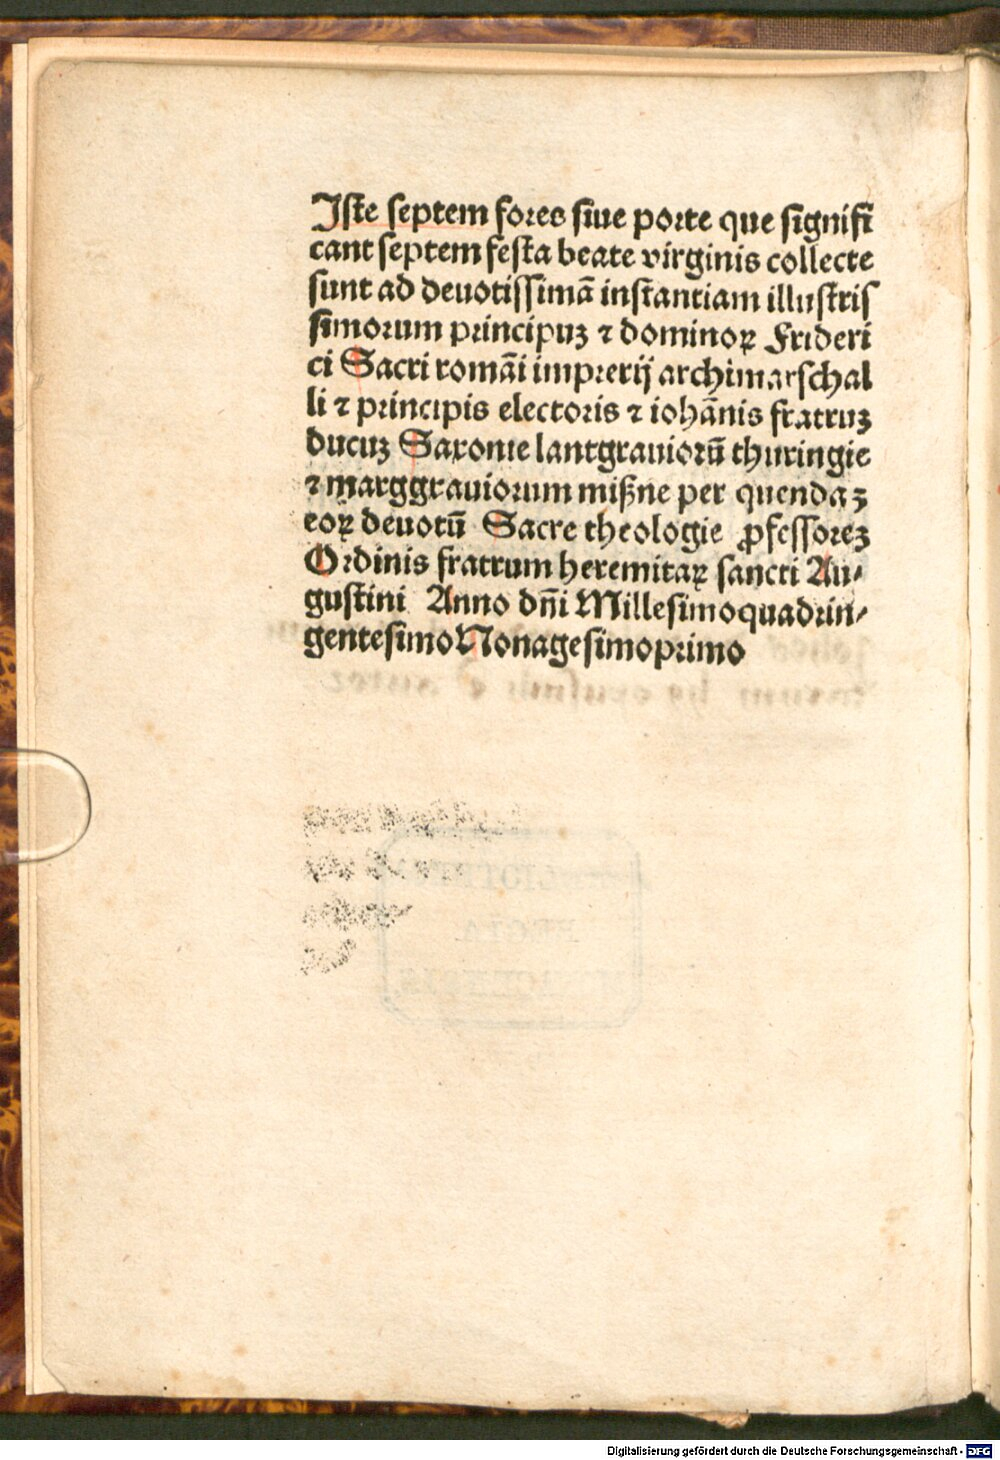 Iste septem fores siue porte que signifi
cant septem festa beate virginis collecte
sunt ad deuotissimā instantiam illustris
simorum principuʒ ⁊ dominoꝝ Frideri
ci Sacri romāi imprerij archimarschal
li ⁊ principis electoris ⁊ iohānis fratruʒ
ducuʒ Saxonie lantgrauiorū thuringie
⁊ marggrauiorum mißne per quendaʒ
eoꝝ deuotū Sacre theologie ꝓfessoreʒ
Ordinis fratrum heremitaꝝ sancti Au-
gustini Anno dn̄i Millesimoquadrin-
gentesimo Nonagesimoprimo
Digitalisierung gefördert durch die Deutsche Forschungsgemeinschaft - DFG